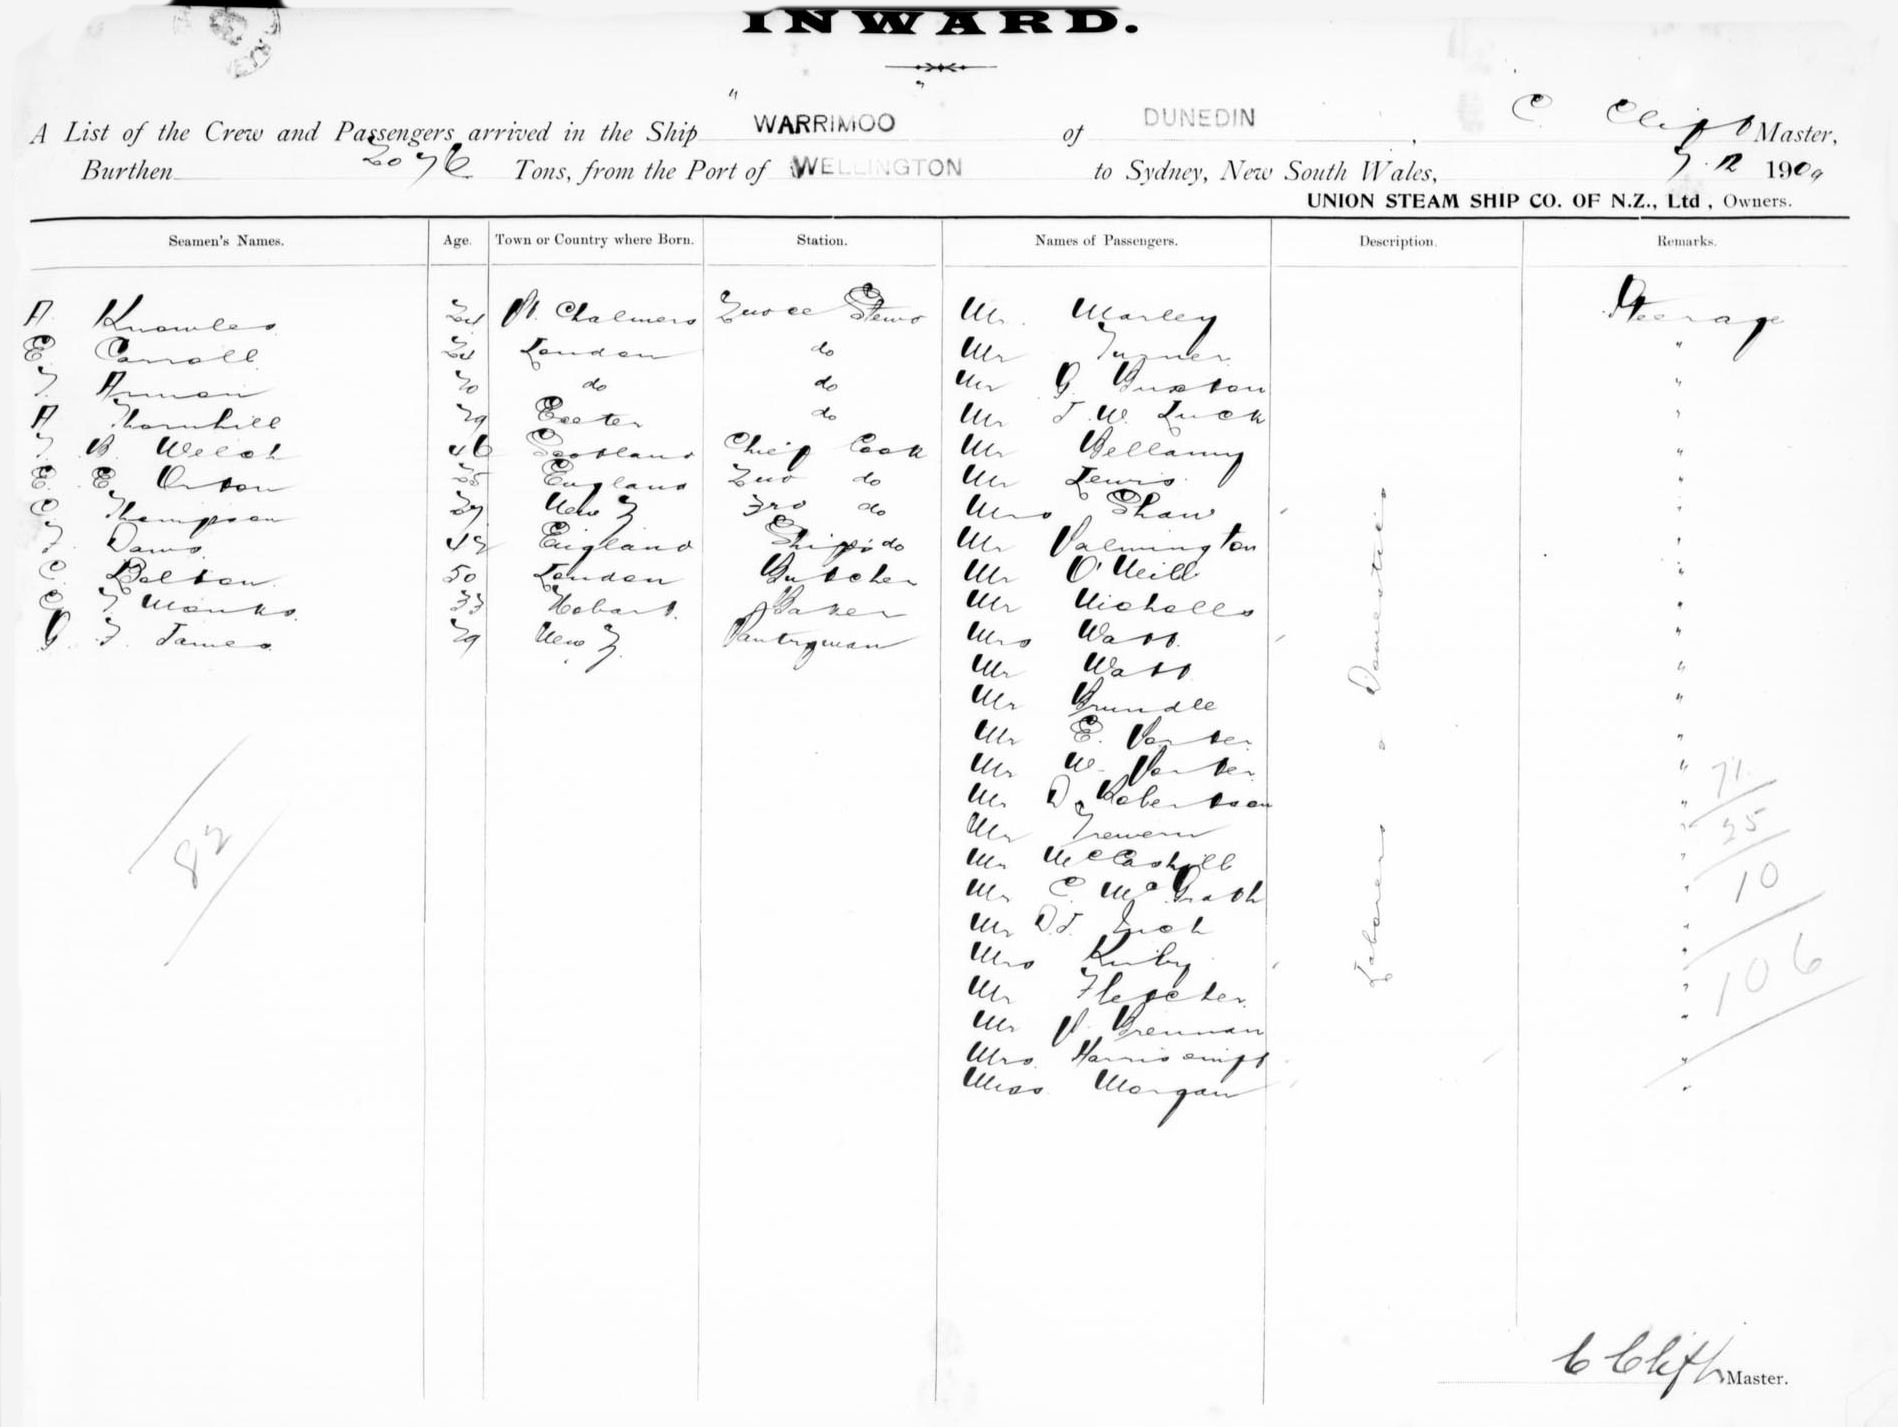 INWARD.
A List of the Crew and Passengers arrived in the Ship " WARRIMOO " of DUNEDIN, C. Clift Master,
Burthen 2076 Tons, from the Port of WELLINGTON to Sydney, New South Wales, 7.12 1909
UNION STEAM SHIP CO. OF N.Z., Ltd, Owners.
Seamen's Names. Age. Town or Country where Born. Station. Names of Passengers. Description. Remarks.
A Knowles 24 Pt. Chalmers Stewd Mr. Morley Steerage
E. Carroll 24 London do Mr Turner "
do do Mr G. Buxton "
A Thornhill 29 Exeter do Mr J. W. Luck "
B. Welch 46 Scotland Chief Cook Mr Bellamy "
E. E Orton 25 England 2nd do Mr Lewis "
C Thompson 27 New Z 3rd do Mrs Shaw "
F. Daws 42 England Ships do Mr Palmington "
C. Bolton 50 London Butcher Mr O'Neill "
Monks. 33 Hobart. Baker Mr Nicholls "
G. F. James 29 New Z. Pantryman Mrs Watt "
Mr Watt "
Mr Brundle "
Mr E. Porter "
Mr W. Porter "
Mr D. Robertson "
Mr Trewern "
Mr McCaskill "
Mr C. McGrath "
Mr D.J. "
Mrs Kirby "
Mr Fletcher "
Mr P. Brennan "
Mrs "
Miss Morgan "
Laborers & Domestics
82
71
25
10
106
C Clift Master.